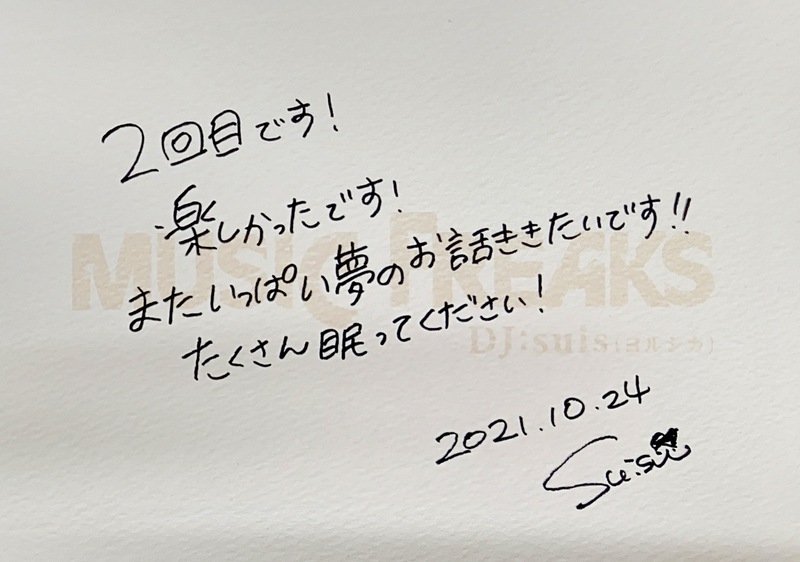 2回目です！
楽しかったです！
またいっぱい夢のお話ききたいです!!
たくさん眠ってください！
MUSIC FREAKS
DJ:suis(ヨルシカ)
2021.10.24
Suis